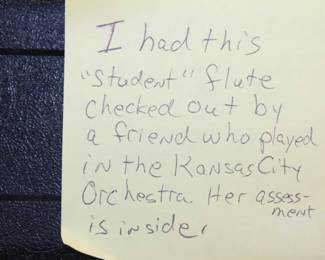 I had this
"student" flute
checked out by
a friend who played
in the Kansas City
Orchestra. Her assess-
ment
is inside,